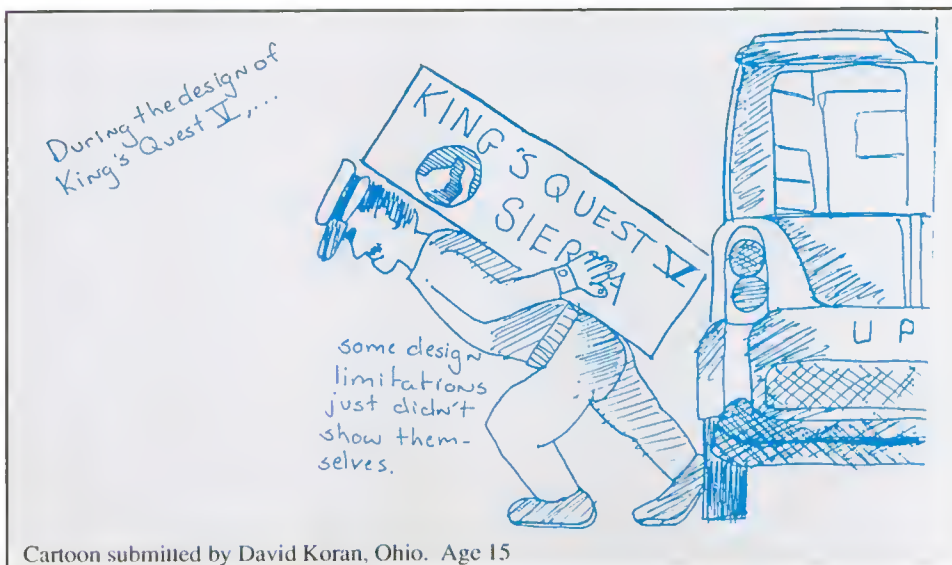 During the design of
King's Quest V,...
KING'S QUEST V
SIERRA
some design
limitations
just didn't
show them-
selves.
UP
Cartoon submitted by David Koran, Ohio. Age 15